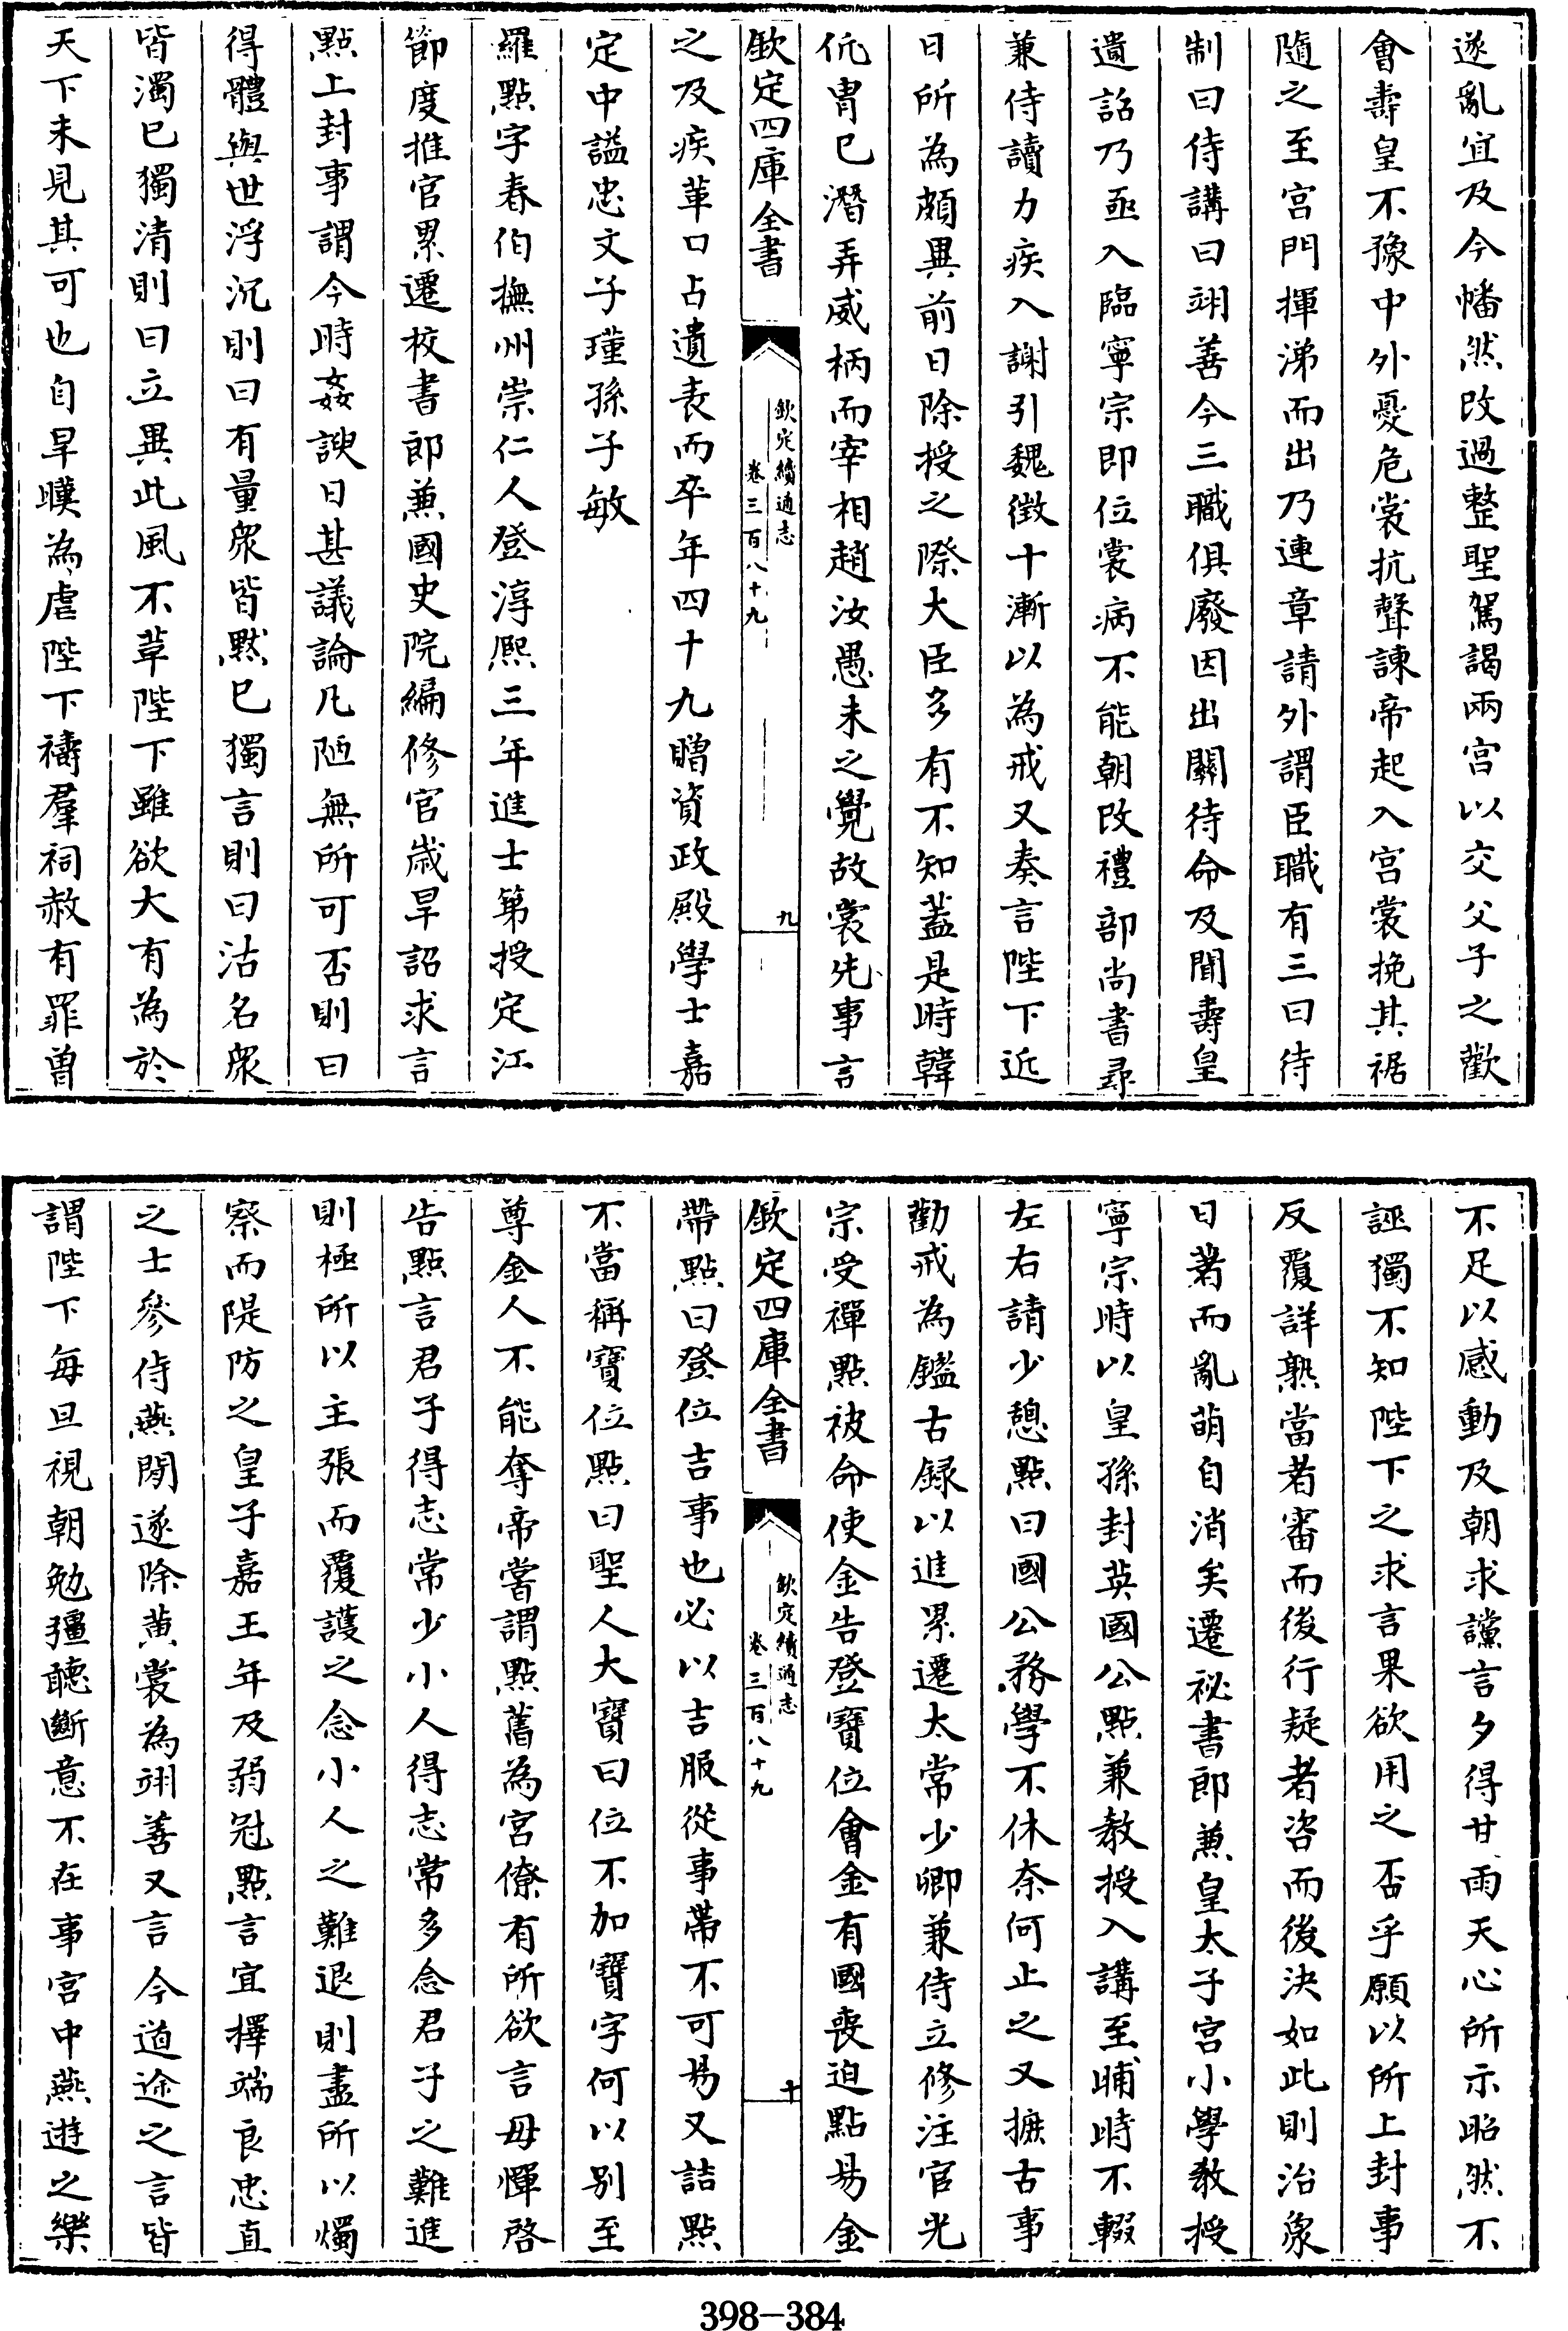 遂亂宜及今幡然改過整聖駕謁兩宮以交父子之歡
會壽皇不豫中外憂危裳抗聲諫帝起入宮裳挽其裾
隨之至宮門揮涕而出乃連章請外謂臣職有三曰待
制曰侍講曰翊善今三職俱廢因出關待命及聞壽皇
遺詔乃亟入臨寧宗即位裳病不能朝改禮部尚書尋
兼侍讀力疾入謝引魏徵十漸以為戒又奏言陛下近
日所為頗異前日除授之際大臣多有不知蓋是時韓
侂胄已潛弄威柄而宰相趙汝愚未之覺故裳先事言
欽定四庫全書
欽定續通志
卷三百八十九
九
之及疾革口占遺表而卒年四十九贈資政殿學士嘉
定中謚忠文子瑾孫子敏
羅點字春伯撫州崇仁人登淳熙三年進士第授定江
節度推官累遷校書郎兼國史院編修官歲旱詔求言
點上封事謂今時姦諛日甚議論凡陋無所可否則曰
得體與世浮沉則曰有量衆皆默已獨言則曰沽名衆
皆濁已獨清則曰立異此風不革陛下雖欲大有為於
天下未見其可也自旱暵為虐陛下禱羣祠赦有罪曾
不足以感動及朝求讜言夕得甘雨天心所示昭然不
誣獨不知陛下之求言果欲用之否乎願以所上封事
反覆詳熟當者審而後行疑者咨而後決如此則治象
日著而亂萌自消矣遷祕書郎兼皇太子宮小學教授
寧宗時以皇孫封英國公點兼教授入講至晡時不輟
左右請少憩點曰國公務學不休奈何止之又摭古事
勸戒為鑑古録以進累遷太常少卿兼侍立修注官光
宗受禪點被命使金告登寶位會金有國喪迫點易金
欽定四庫全書
欽定續通志
卷三百八十九
十
帶點曰登位吉事也必以吉服從事帶不可易又詰點
不當稱寶位點曰聖人大寶曰位不加寶字何以别至
尊金人不能奪帝嘗謂點舊為宮僚有所欲言毋憚啓
告點言君子得志常少小人得志常多念君子之難進
則極所以主張而覆護之念小人之難退則盡所以燭
察而隄防之皇子嘉王年及弱冠點言宜擇端良忠直
之士參侍燕閒遂除黄裳為翊善又言今道途之言皆
謂陛下每旦視朝勉彊聽斷意不在事宮中燕遊之樂
398-384